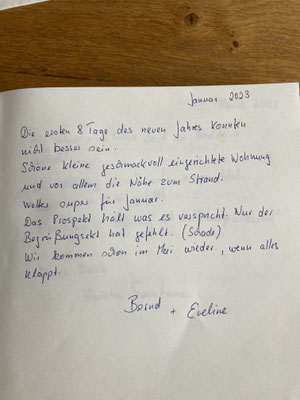 Januar 2023
Die ersten 8 Tage des neuen Jahres konnten
nicht besser sein.
Schöne kleine geschmackvoll eingerichtete Wohnung
und vor allem die Nähe zum Strand.
Wetter super für Januar.
Das Prospekt hält was es verspricht. Nur der
Begrüßungsekt hat gefehlt. (Schade)
Wir kommen schon im Mai wieder, wenn alles
klappt.
Bernd + Eveline